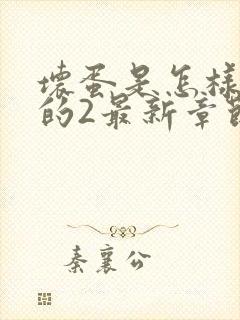 壞蛋是怎樣
的2最新章節
秦襄公